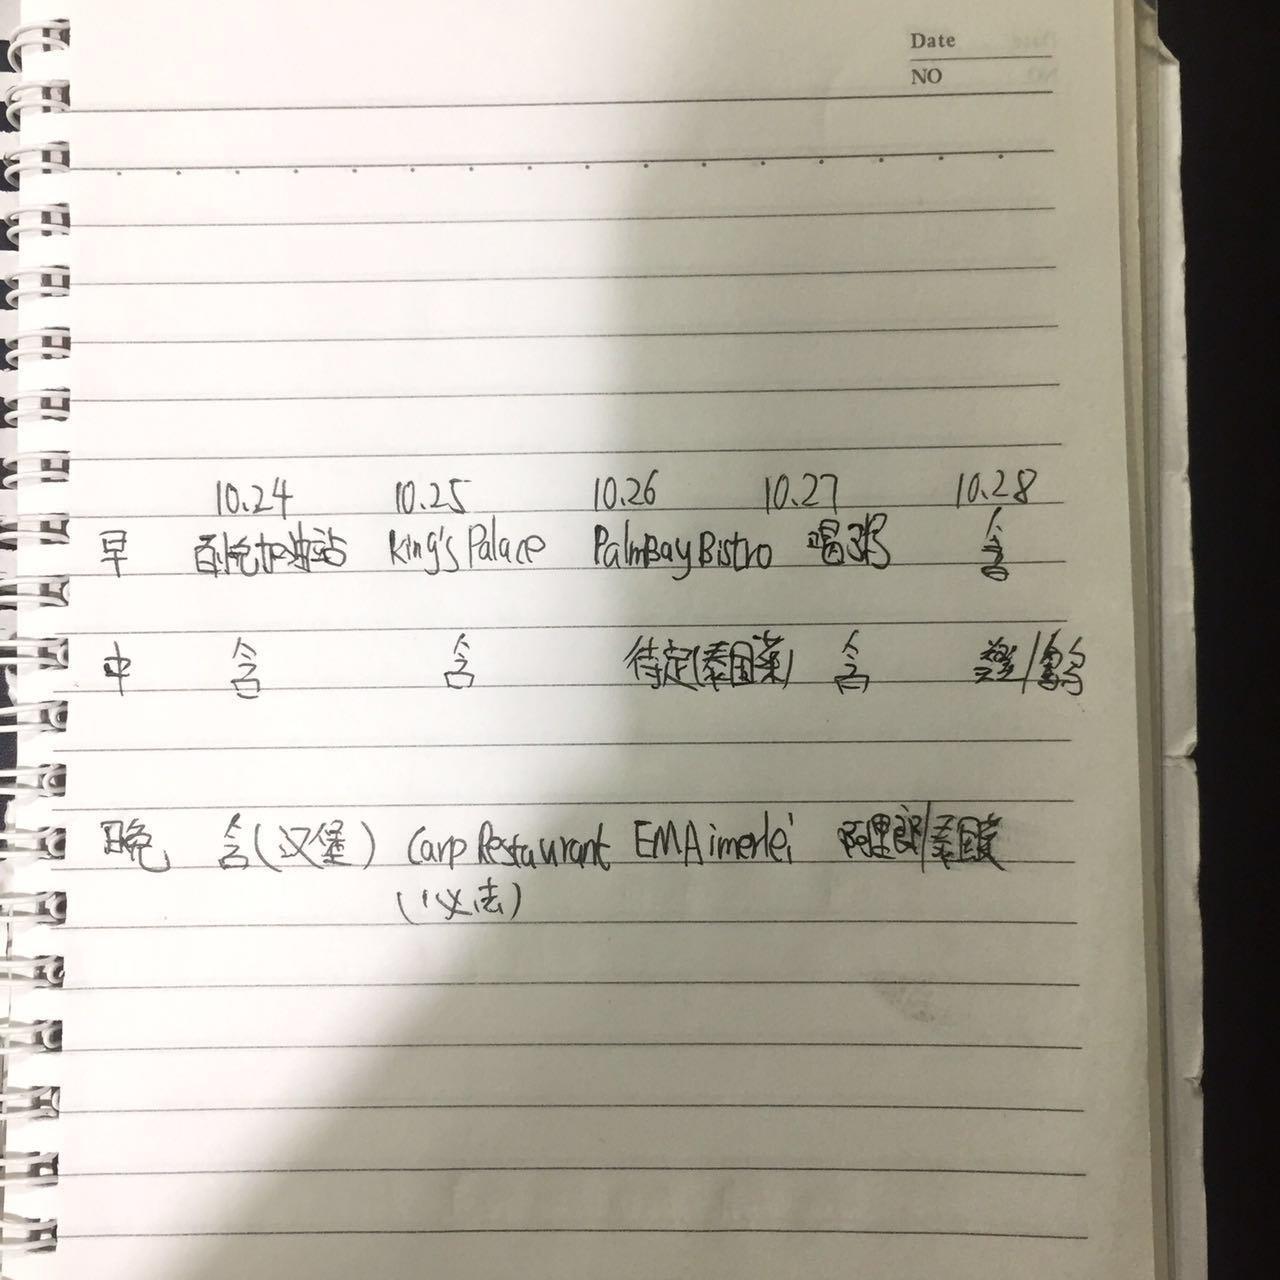 Date
NO
10.24 10.25 10.26 10.27 10.28
早 耐克加油站 King's Palace PalmBay Bistro 喝粥 含
中 含 含 待定(泰国菜) 含
晚 含(汉堡) Carp Restaurant EMAimerlei 阿里郎/泰国菜
(必去)